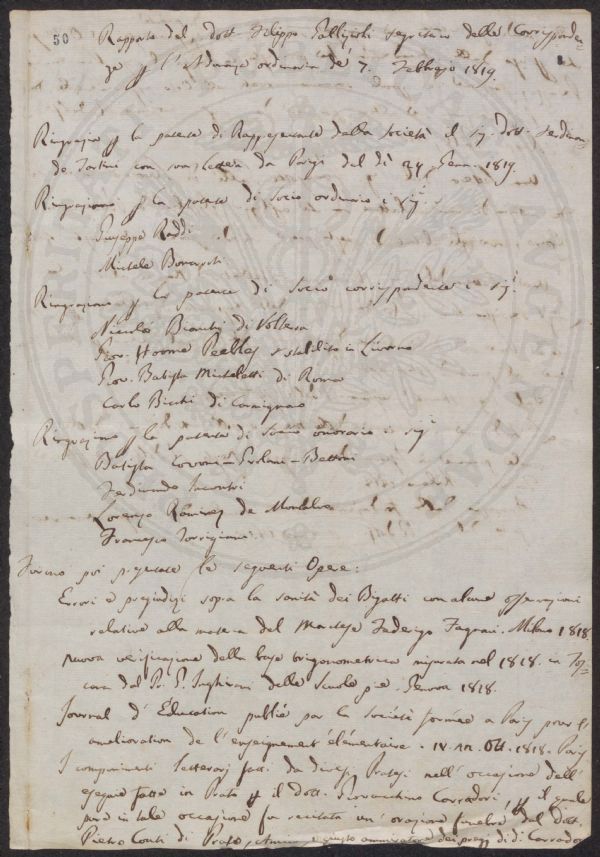 50
Rapporto del dott. Filippo Gallizioli segretario delle Corrisponden-
ze p l'Adunanza ordinaria de' 7. Febbrajo 1819.
Ringrazia p la patente di Rappresentante della Società il sig. Dott. Ferdinan-
do Tartini con sua lettera da Parigi del dì 24 Genn. 1819.
Ringraziano p la patente di Socio ordinario i sigi
Giuseppe Raddi
Michele
Ringraziano p la patente di Socio corrispondente i sigi
Niccolò Bianchi di Volterra
Giov. Peebles stabilito in Livorno
Giov. Batista Micheletti di Roma
Carlo Bicchi di Carmignano
Ringraziano p la patente di Socio onorario i sigi
Batista Bettoni
Ferdinando Incontri
Lorenzo Ramirez de Montalvo
Francesco Torrigiani
Furono poi presentate le seguenti Opere:
Errori e pregiudizi sopra la sanità dei Bigatti con alcune osservazioni
relative alla materia del Marchese Federigo Fagnani. Milano 1818
Nuova verificazione della base trigonometrica misurata nel 1818. in Tos-
cana dal P. G. Inghirami delle Scuole pie. Genova 1818.
Journal d'Education publié par la Société formée a Paris pour l'
amelioration de l'enseignement élémentaire. IV. An. Ott. 1818. Paris
I componimenti letterarj fatti da diversi Pratesi nell'occasione dell'
esequie fatte in Prato p il dott. Giovacchino Carradori, p il quale
pure in tale occasione fu recitata un'orazione funebre dal dott.
Pietro Conti di Prato, Amico e giusto ammiratore dei pregi di d. Carradori